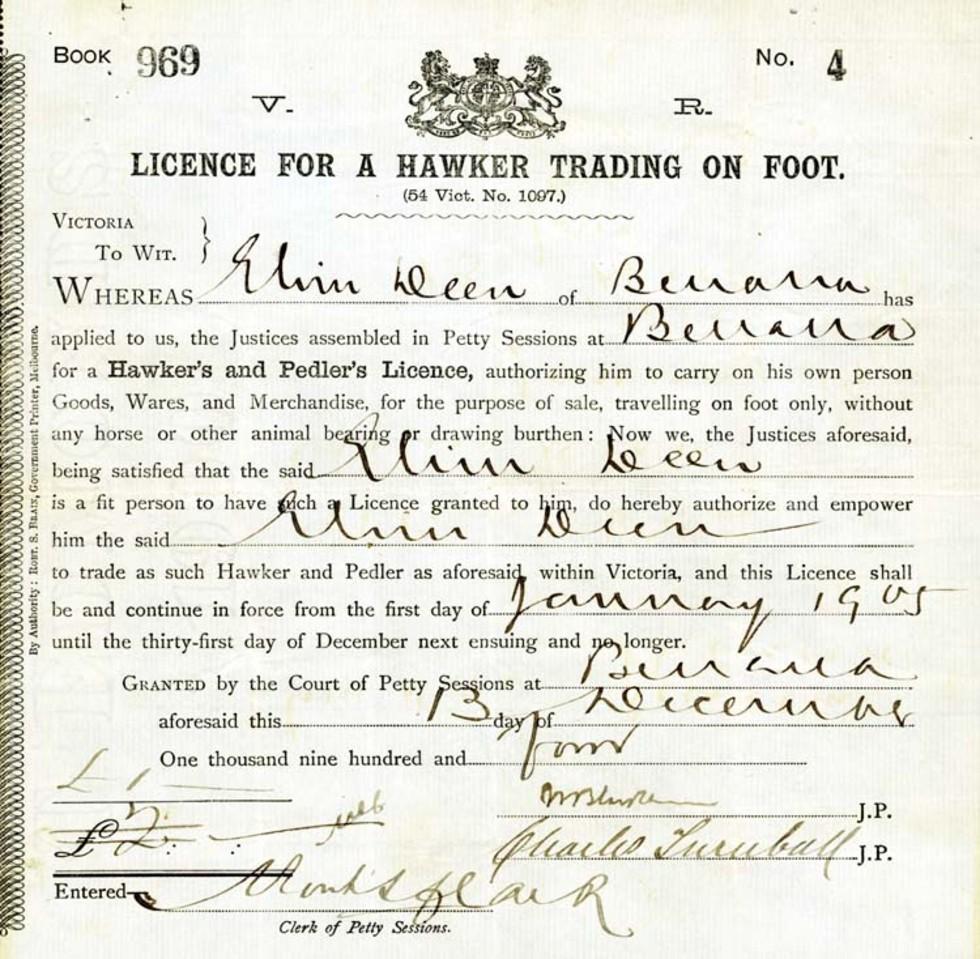 BOOK 969 No. 4
V. R.
LICENCE FOR A HAWKER TRADING ON FOOT.
(54 Vict. No. 1097.)
VICTORIA
TO WIT. }
WHEREAS Elim Deen of Benalla has
applied to us, the Justices assembled in Petty Sessions at Benalla
for a Hawker's and Pedler's Licence, authorizing him to carry on his own person
Goods, Wares, and Merchandise, for the purpose of sale, travelling on foot only, without
any horse or other animal bearing or drawing burthen: Now we, the Justices aforesaid,
being satisfied that the said Elim Deen
is a fit person to have such a Licence granted to him, do hereby authorize and empower
him the said Elim Deen
to trade as such Hawker and Pedler as aforesaid within Victoria, and this Licence shall
be and continue in force from the first day of January 1905
until the thirty-first day of December next ensuing and no longer.
GRANTED by the Court of Petty Sessions at Benalla
aforesaid this 13 day of December
One thousand nine hundred and four
£1
J.P.
£2
Charles Turnbull J.P.
Entered
Clerk of Petty Sessions.
By Authority: ROBT. S. BRAIN, Government Printer, Melbourne.